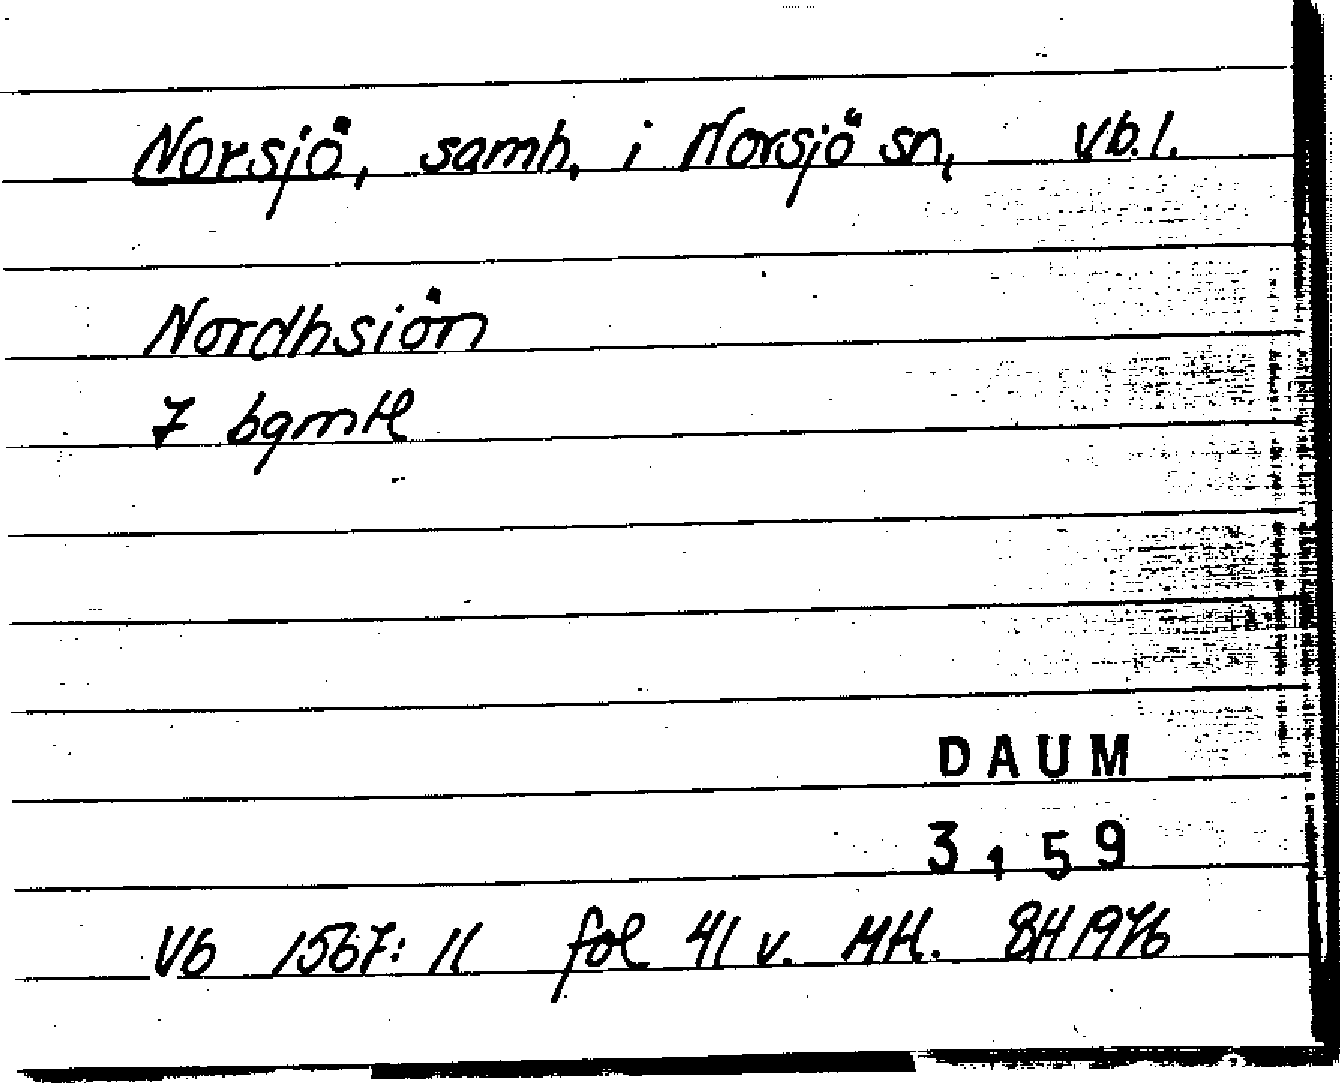 Norsjö, samh. i Norsjö sn, Vb.l.
Nordhsiön
7 bgmtl
DAUM
3159
Vb 1567: 11 fol 41 v. MH. BH 1976